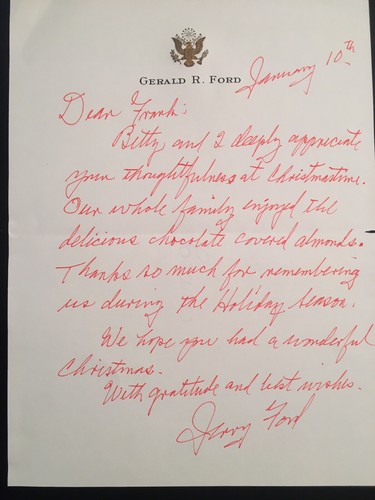 GERALD R. FORD
January 10th
Dear Frank:
Betty and I deeply appreciate
your thoughtfulness at Christmastime.
Our whole family enjoyed the
delicious chocolate covered almonds.
Thanks so much for remembering
us during the Holiday Season.
We hope you had a wonderful
Christmas.
With gratitude and best wishes.
Jerry Ford